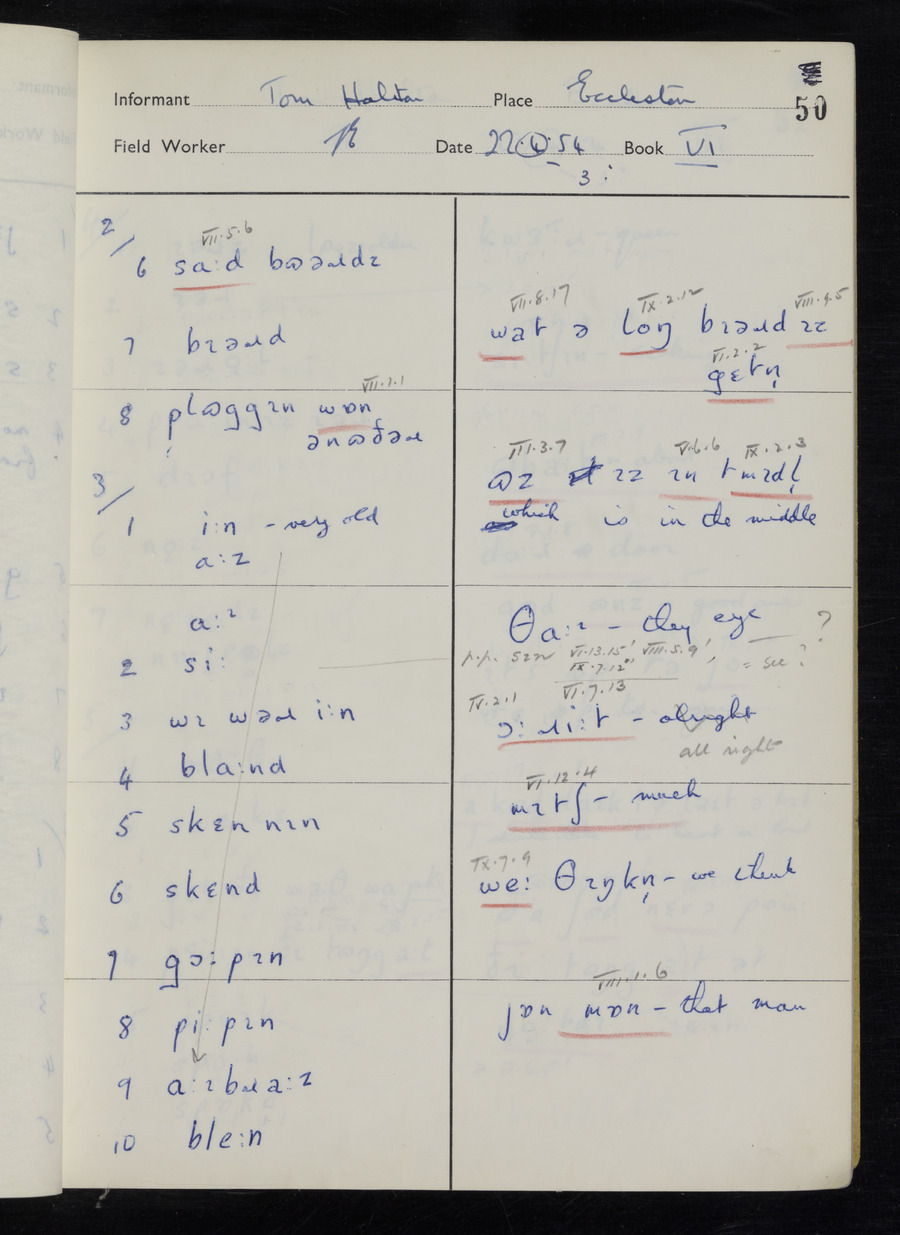 50
Informant Tom Halton Place Eccleston
Field Worker Date 22·4·54 Book VI
3 :
2/
VII·5·6
6 sa:d bɷəɹdz
7 bɪəɹd
VII·8·17 IX·2·12 VIII·9·5
wat ə lɒŋ bɪəɹd ɪz
VI·2·2
gɛtn̩
VII·2·1
8 plɷggɪn wɒn
ənɷðəɹ
III·3·7 V·6·6 IX·2·3
ɷz ɪz ɪn t mɪdl̩
which is in the middle
3/
1 i:n - very old
a:z
a:ɪ
θa:ɪ - they eye ?
2 si:
p.p. sɪn VI·13·15' VIII·5·9', = see?
IX·7·12"
IV·2·1 VI·7·13
3 wɪ wəɹ i:n
ɔ:ɹi:t - alright
all right
4 bla:nd
VI·12·4
mɪtʃ - much
5 skɛnnɪn
6 skɛnd
IX·7·9
we: θɪŋkn̩ - we think
7 gɔ:pɪn
VIII·1·6
8 pi:pɪn
jɒn mɒn - that man
9 a:ɪbɹa:z
10 ble:n